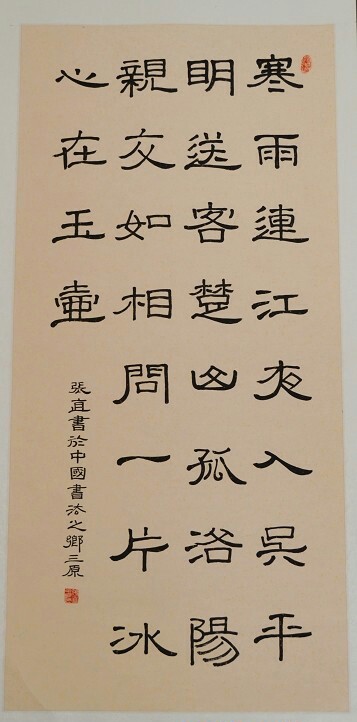 寒雨連江夜入吳平
明送客楚山孤洛陽
親友如相問一片冰
心在玉壺
張宜書於中國書法之鄉三原